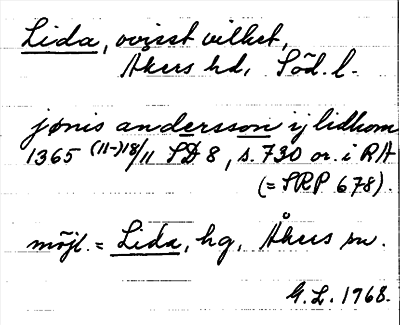 Lida, ovisst vilket,
Åkers hd, Söd. l.
jønis andersson ij lidhom
1365 (11-)18/11 SD 8, s. 730 or. i RA
(= SRP 678).
möjl. = Lida, hg, Åkers sn.
G. L. 1968.